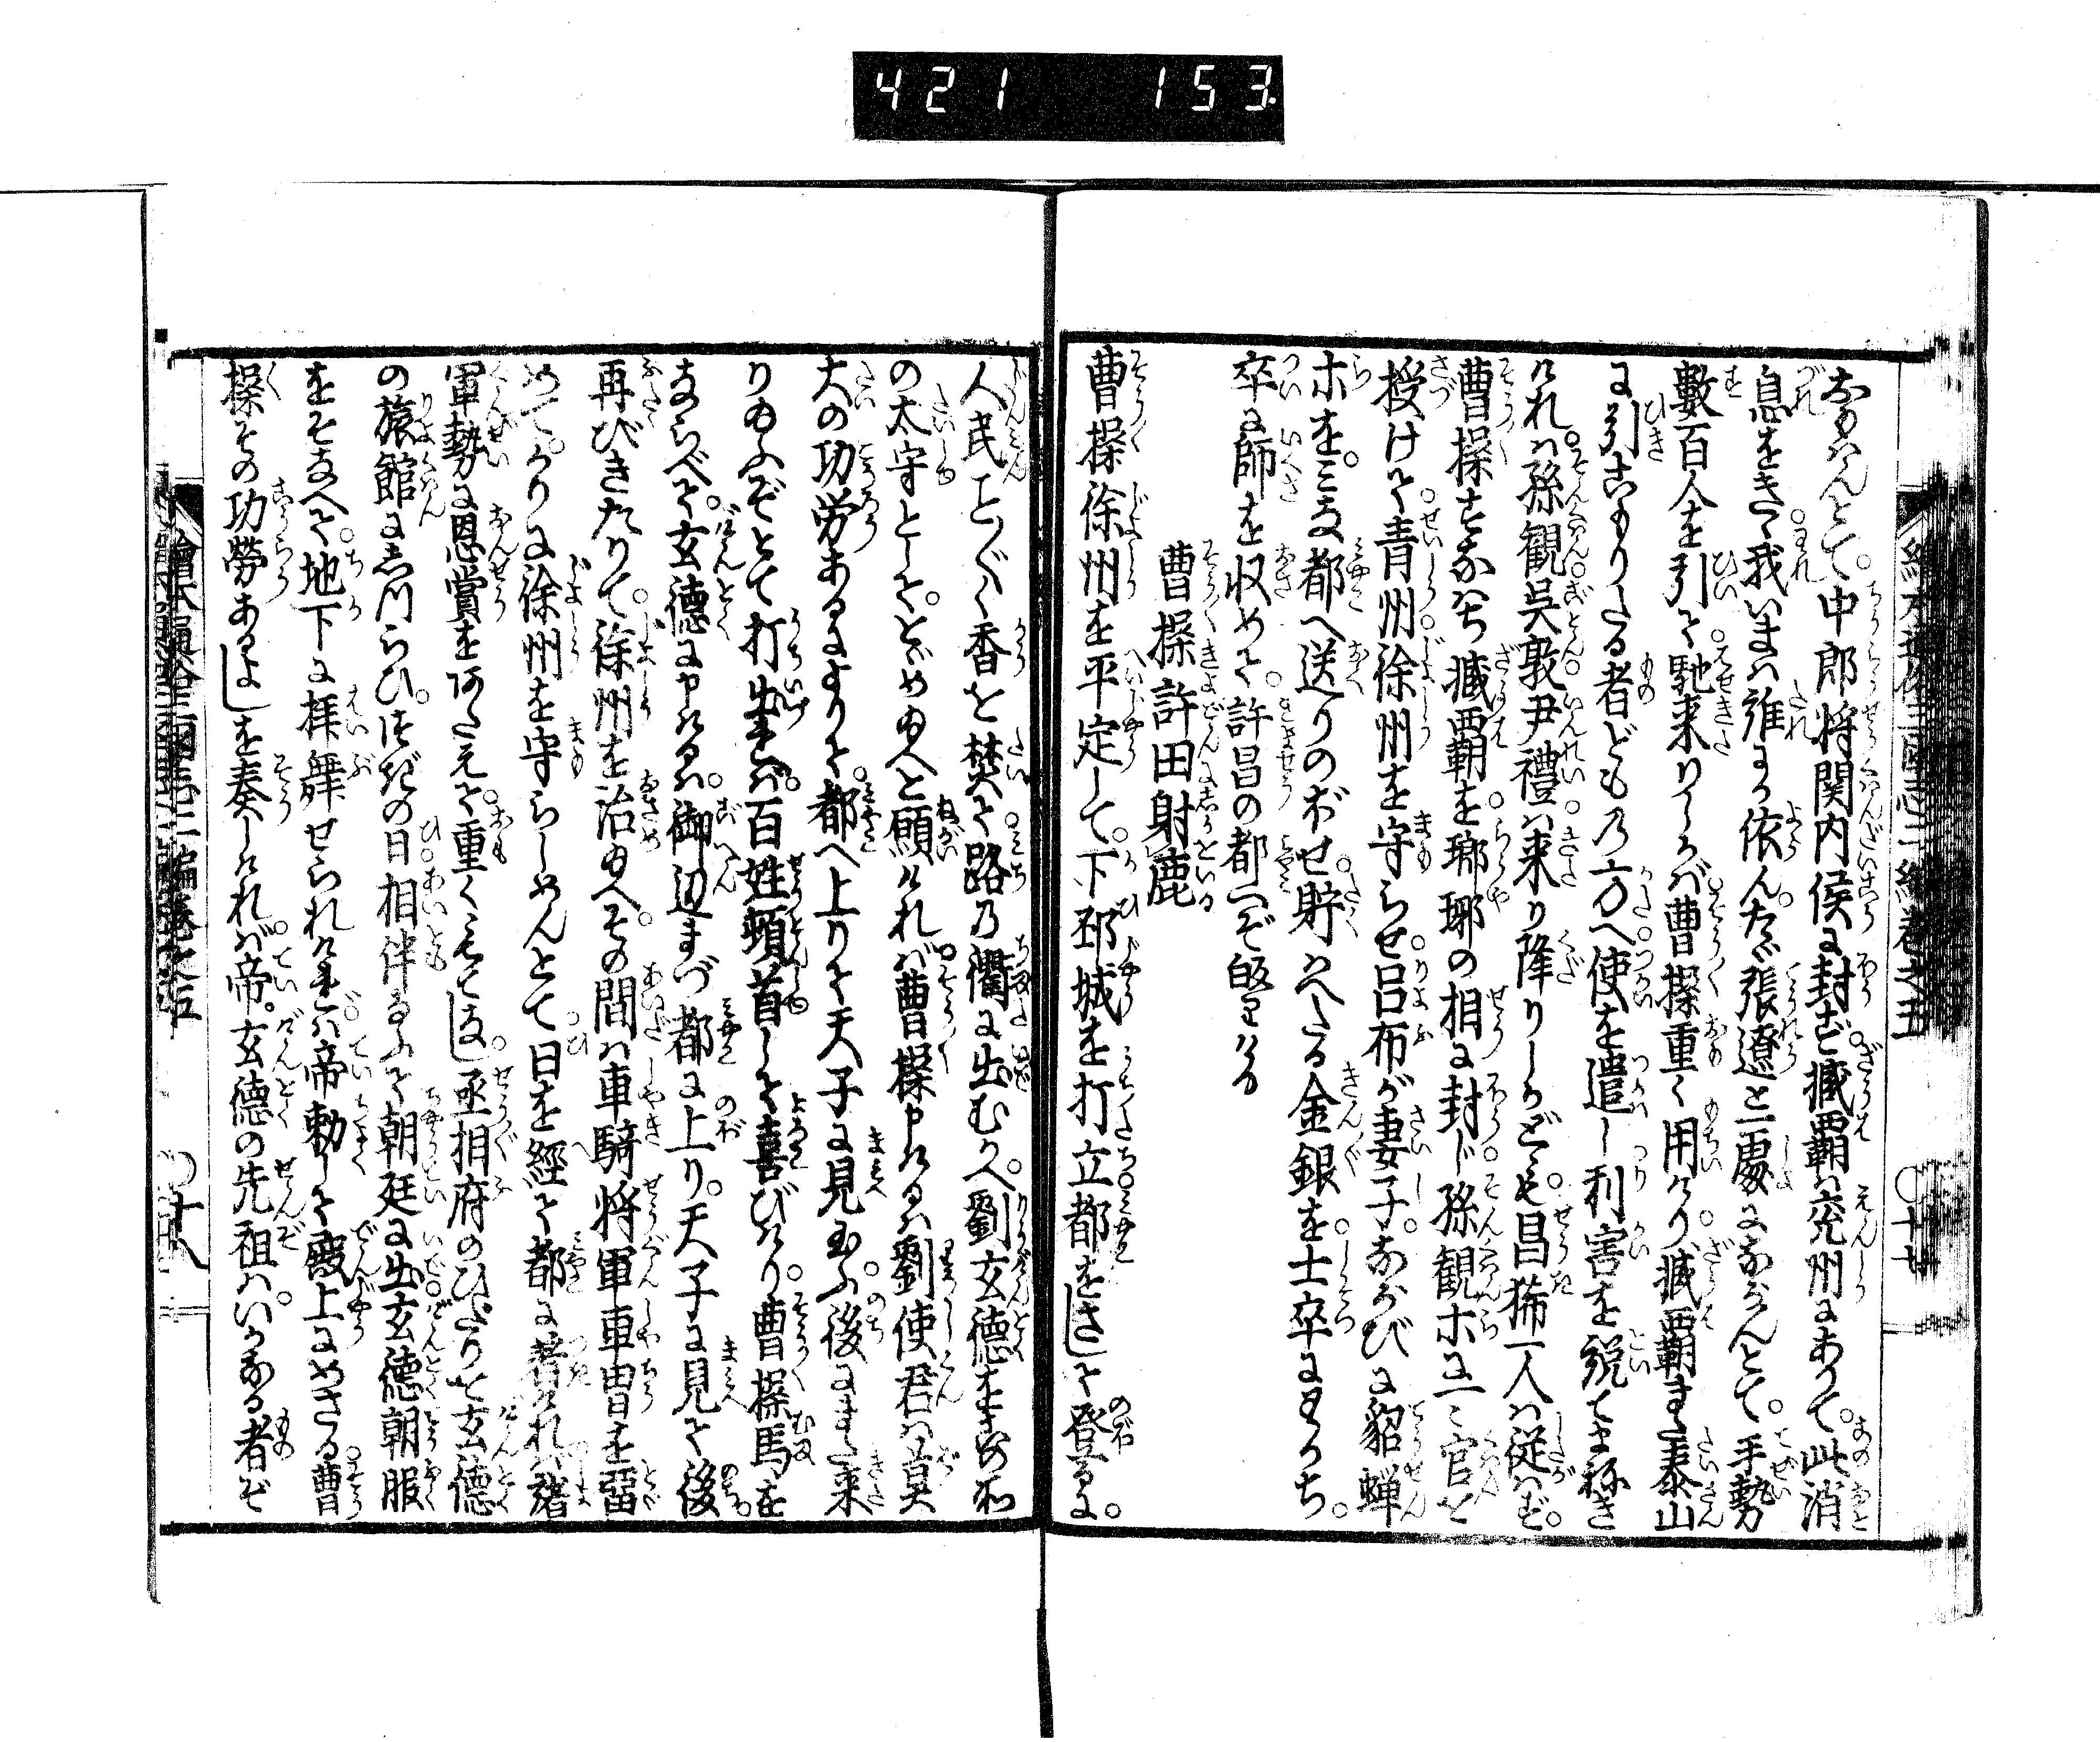 421 153
繪本通俗三國志二編巻之五 〇十七
なすべしとて。中郎将関内侯に封ず。臧覇ハ兗州にありて。此消
息をきゝ。我いまハ誰にか依ん。たゞ張遼と一處にならんとて。手勢
數百人を引て馳来りしかバ。曹操重く用ひけり。臧覇また泰山
に引こもりたる者どもの方へ使を遣し利害を説てまねき
けれハ。孫観呉敦尹禮ハ来り降りしかども。昌豨一人ハ従ハず。
曹操すなハち臧覇を瑯琊の相に封じ。孫観ホに一々官を
授けて。青州。徐州を守らせ。呂布が妻子。ならびに貂蝉
ホを。ミな都へ送りのぼせ。貯ハへたる金銀を。士卒にわかち。
卒に師を収めて。許昌の都へぞ皈りける
曹操許田射鹿
曹操徐州を平定して。下邳城を打立都をさして登るに。
人民ことごとく香を焚て路の衢に出むかへ。劉玄徳をまめ和
の太守として。とゞめ給へと願けれバ。曹操申けるハ劉使君ハ莫
大の功労あるによりて。都へ上りて天子に見え玉ふ。後にまた来
り給ふぞとて打出けれバ。百姓頓首して喜びけり。曹操馬を
ならべて。玄徳に申けるハ。御辺まづ都に上り。天子に見て後
再びきたりて。徐州を治め給へ。その間ハ車騎将軍車冑を留
めて。かりに徐州を守らしめんとて。日を經て都に着けれハ。諸
軍勢に恩賞をあたえて。重くもてなし。丞相府のひだりを玄徳
の旅館にしつらひ。つぎの日相伴なふて朝廷に出。玄徳朝服
をそなへて。地下に拝舞せられけれハ。帝勅して殿上にめさる。曹
操その功勞あるよしを奏しけれバ。帝。玄徳の先祖ハ。いかなる者ぞ
繪本通俗三國志二編巻之五 〇十八